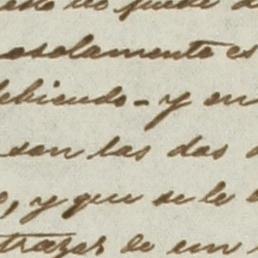 esto no puede d
asolamento es
debiendo - y en
son las dos d
, y que se le
trazar de un